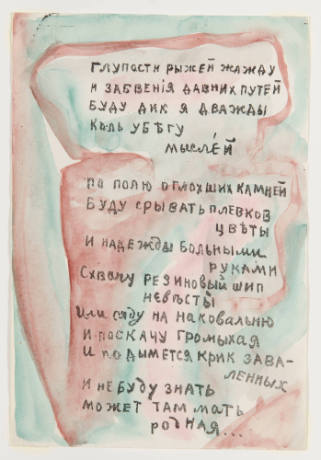 глупости рыжей жажду
и забвенія давних путей
буду дик я дважды
коль убѣгу
мыслей
по полю оглохших камней
буду срывать плевков
цвѣты
и надежды больными
руками
схвачу резиновый шип
невѣсты
или сяду на наковальню
и поскачу громыхая
и подымется крик зава-
ленных
и не буду знать
может там мать
родная...